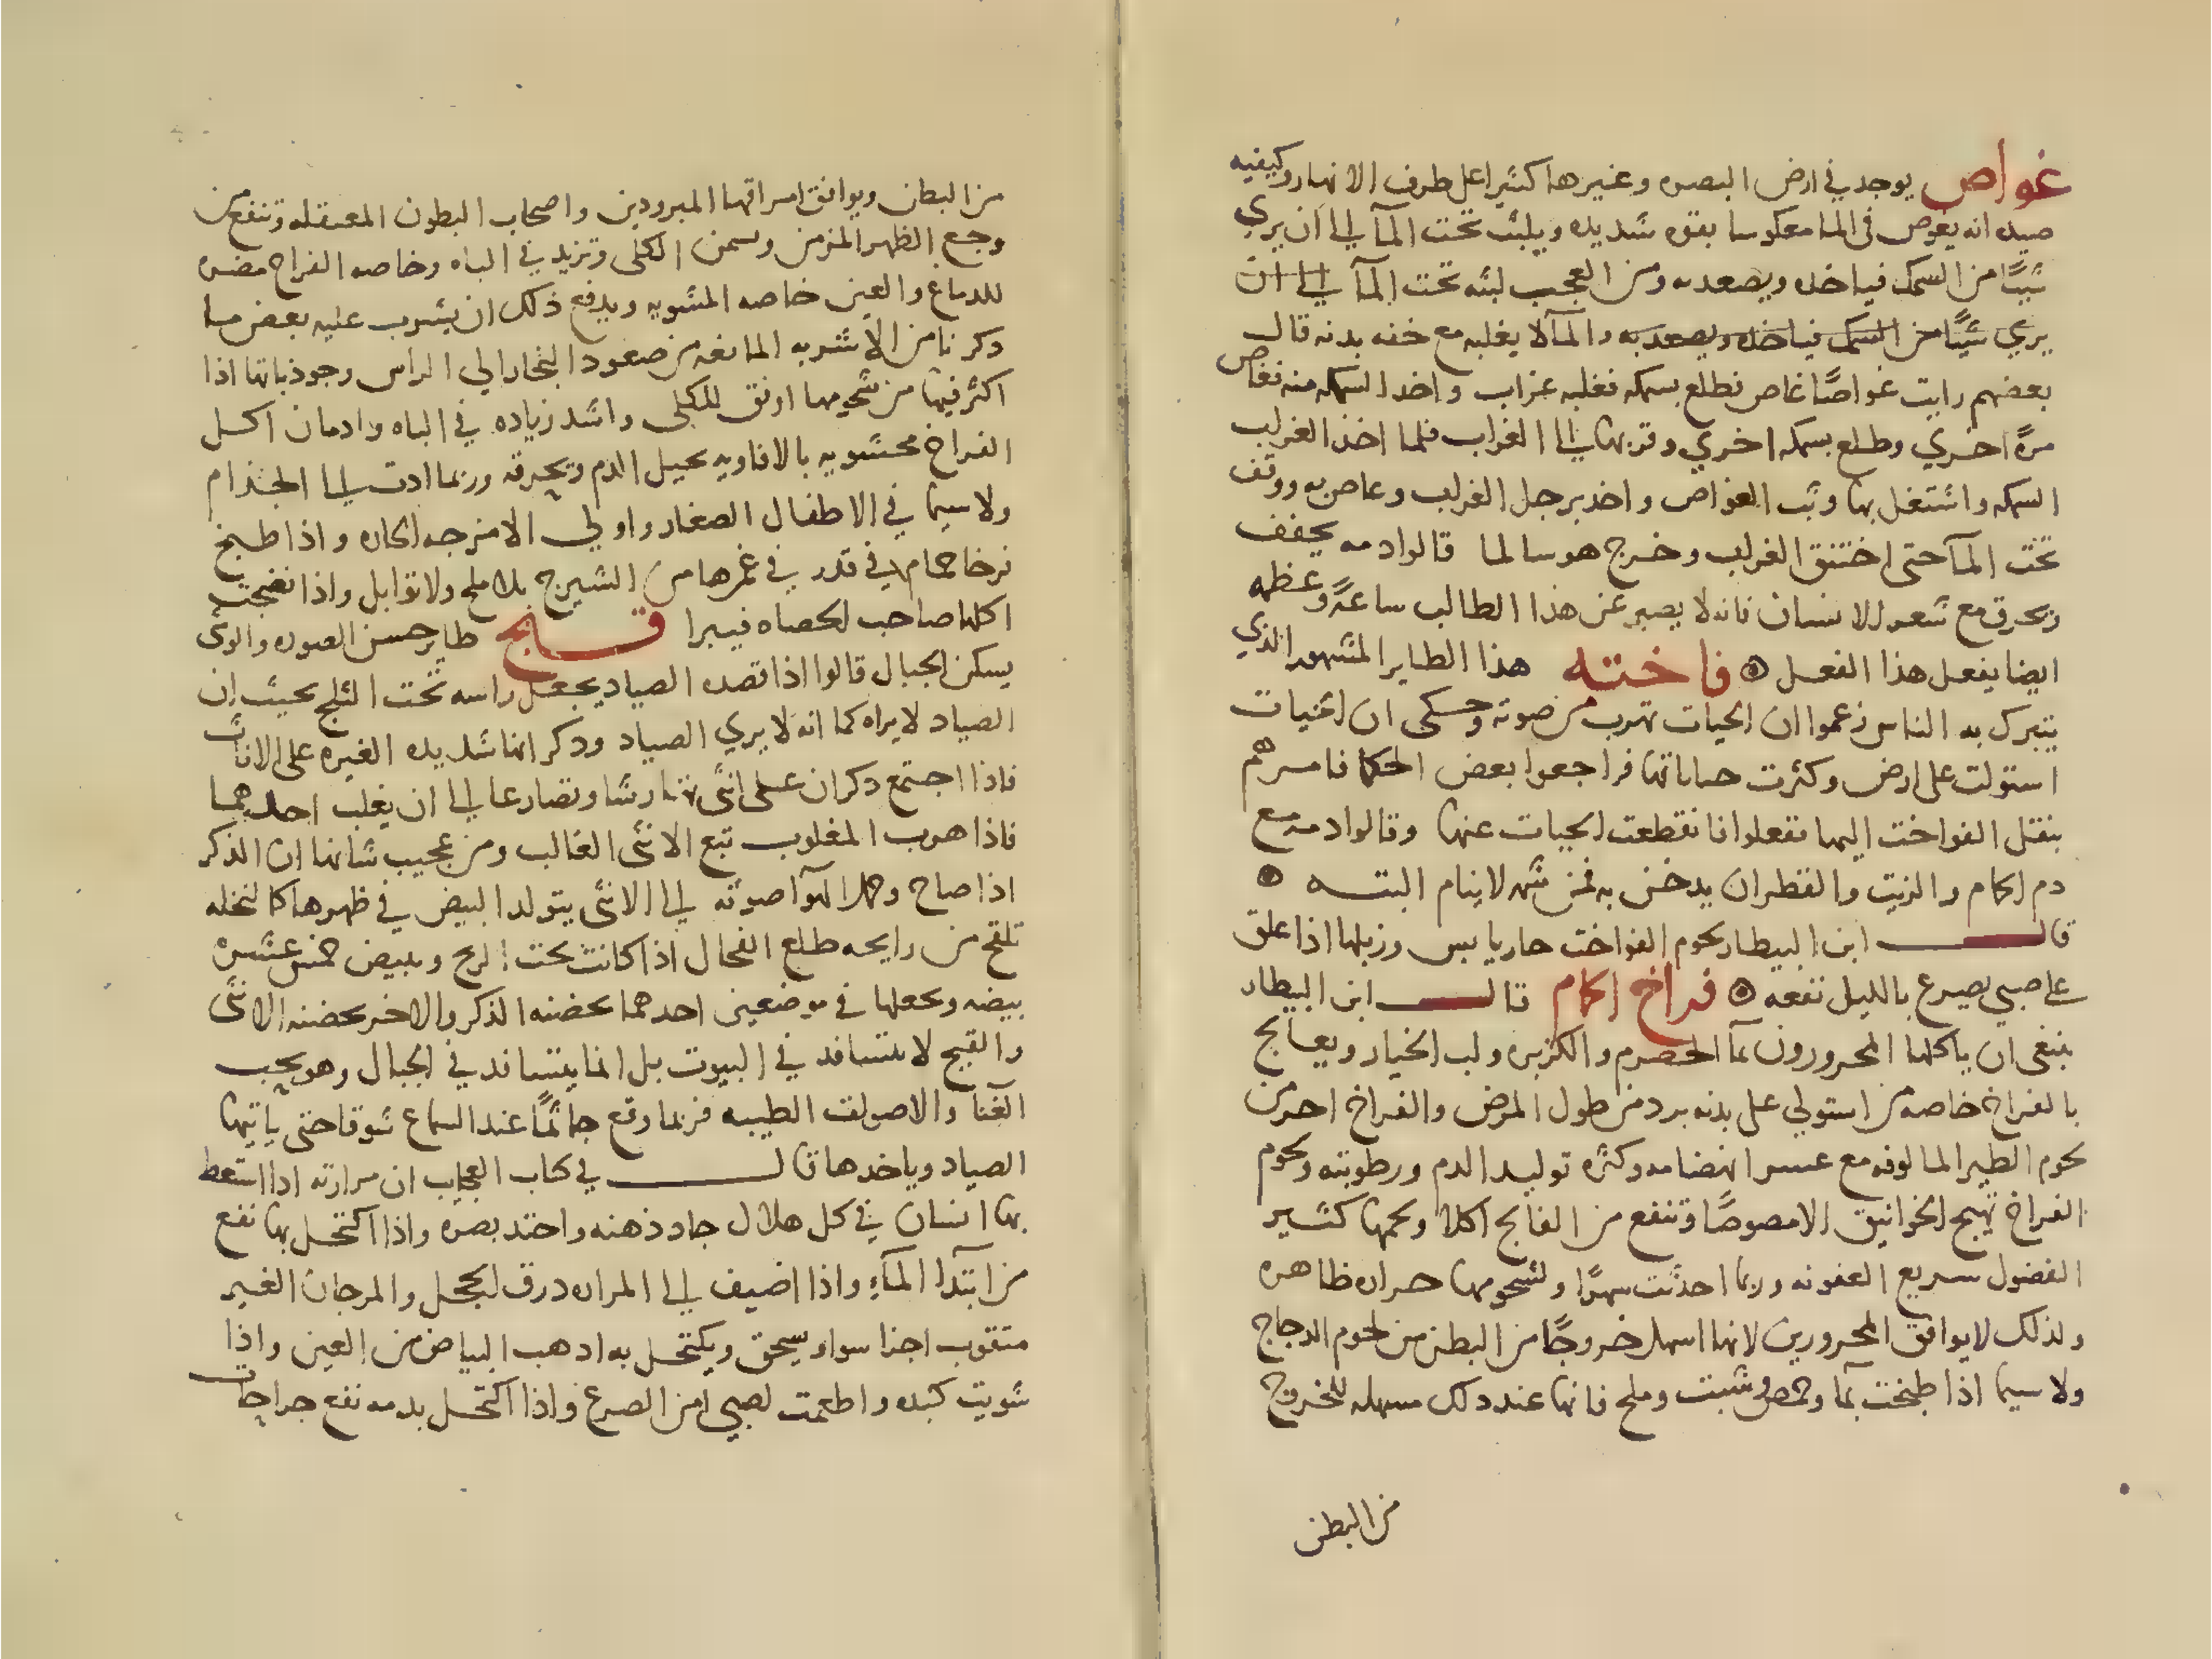 غواص يوجد في ارض البصره وغيرها كثيرا على طرف الانهار وكيفيه
صيده انه يغوص في الما معكوسا بقوه شديده ويلبث تحت المآ الي ان يري
شيًا من السمك فياخذه ويصعد به ومن العجب لبثه تحت المآ الي ان
يري شيًا من السمك فياخذه ويصعد به والمآ لا يغلبه مع خفه بدنه قال
بعضهم رايت غواصًا غاص فطلع بسمكه فغلبه غراب واخذ السمكه منه فغاص
مرةً اخري وطلع بسمكه اخري وقربها الي الغراب فلما اخذ الغراب
السمكه واشتغل بها وثب الغواص واخذ برجل الغراب وغاص به ووقف
تحت المآ حتى اختنق الغراب وخرج هو سالما قالوا دمه يجفف
ويحرق مع شعر الانسان فانه لا يصبر عن هذا الطالب ساعةً وعظمه
ايضا يفعل هذا الفعل ه فاخته هذا الطاير المشهور الذي
يتبرك به الناس زعموا ان الحيات تهرب من صوته وحكى ان الحيات
استولت على ارض وكثرت حياتها فراجعوا بعض الحكما فامرهم
بنقل الفواخت اليها ففعلوا فانقطعت الحيات عنها وقالوا دمه مع
دم الحمام والزيت والقطران يدخن به فمن شمه لا ينام البته ه
قال ابن البيطار لحوم الفواخت حار يابس وزبلها اذا علق
على صبي يصرع بالليل نفعه ه فراخ الحمام قال ابن البيطار
ينبغي ان ياكلها المحرورون بمآ الحصرم والكزبره ولب الخيار ويعالج
بالفراخ خاصه من استولي على بدنه برد من طول المرض والفراخ احر من
لحوم الطير المالوفه مع عسر انهضامه وكثره توليد الدم ورطوبته ولحوم
الفراخ تهيج الخوانيق الا مصوصًا وتنفع من الفالج اكلا ولحمها كثير
الفضول سريع العفونه وربما احدثت سهرًا ولشحومها حراره ظاهره
ولذلك لا يوافق المحرورين لانها اسهل خروجًا من البطن من لحوم الدجاج
ولا سيما اذا طبخت بمآ وحمص وشبت وملح فانها عند ذلك مسهله للخروج
من البطن
من البطن ويوافق امراقها المبرودين واصحاب البطون المعتقله وتنفع من
وجع الظهر المزمن وتسمن الكلى وتزيد في الباه وخاصه الفراخ مضره
للدماغ والعين خاصه المشويه ويدفع ذلك ان يشرب عليه بعض ما
ذكرنا من الاشربه المانعه من صعود البخار الي الراس وجوذباتها اذا
اكثر فيها من شحومها اوفق للكلى واشد زياده في الباه وادمان اكل
الفراخ محشويه بالافاويه يحيل الدم ويحرقه وربما ادت الي الجذام
ولا سيما في الاطفال الصغار واولي الامزجه الحاره واذا طبخ
فرخا حمام في قدر في غمرها من الشيرج بلا ملح ولا توابل واذا نضجت
اكلها صاحب الحصاه فيبرا قبج طاير حسن الصوره والوى
يسكن الجبال قالوا اذا قصده الصياد يجعل راسه تحت الثلج بحيث ان
الصياد لا يراه كما انه لا يري الصياد وذكر انها شديده الغيره على الاناث
فاذا اجتمع ذكران على انثى تهارشا وتصارعا الي ان يغلب احدهما
فاذا هوب المغلوب تبع الانثى الغالب ومن عجيب شانها ان الذكر
اذا صاح وحمل الهوآ صوته الي الانثى يتولد البيض في ظهرها كالنخله
تلقح من رايحه طلع الفحال اذا كانت تحت الريح وتبيض خمس عشره
بيضه وتجعلها في موضعين احدهما يحضنه الذكر والاخر يحضنه الانثى
والقبج لا يتسافد في البيوت بل انما يتسافد في الجبال وهو يحب
الغنآ والاصوات الطيبه فربما وقع جاثمًا عند السماع شوقا حتى ياتيها
الصياد وياخذها قال في كتاب العجايب ان مرارته اذا استعط
بها انسان في كل هلال جاد ذهنه واحتد بصره واذا اكتحل بها نفع
من ابتدآ المآء واذا اضيف الي المراره ورق لكحل والمرجان الغير
مثقوب اجزا سوا ويسحق ويكتحل به اذهب البياض من العين واذا
شويت كبده واطعمت لصبي امن الصرع واذا اكتحل بدمه نفع جراحات